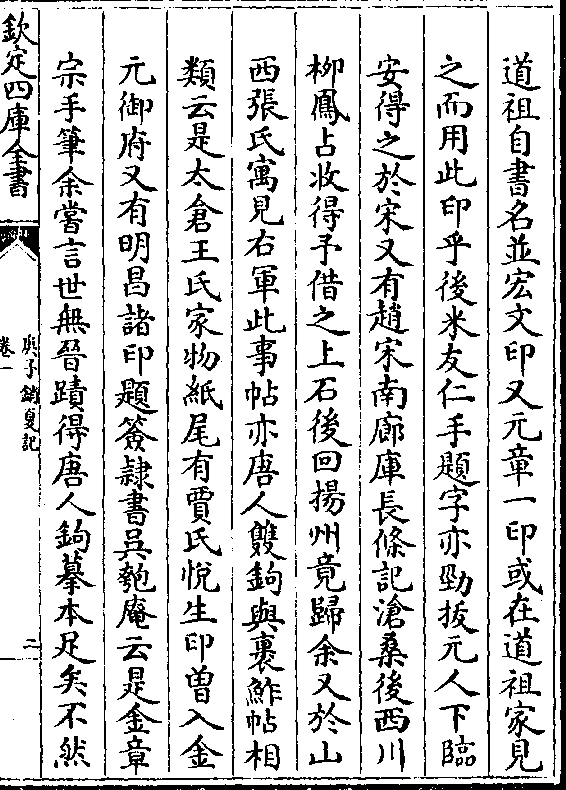 道祖自書名並宏文印又元章一印或在道祖家見
之而用此印乎後米友仁手題字亦勁拔元人下臨
安得之於宋又有趙宋南廊庫長條記滄桑後西川
柳鳳占收得予借之上石後回揚州竟歸余又於山
西張氏寓見右軍此事帖亦唐人雙鉤與裹鮓帖相
類云是太倉王氏家物紙尾有賈氏悅生印曽入金
元御府又有明昌諸印題簽隷書吳匏庵云是金章
宗手筆余嘗言世無晉蹟得唐人鉤摹本足矣不然
欽定四庫全書
庚子銷夏記
卷一
二